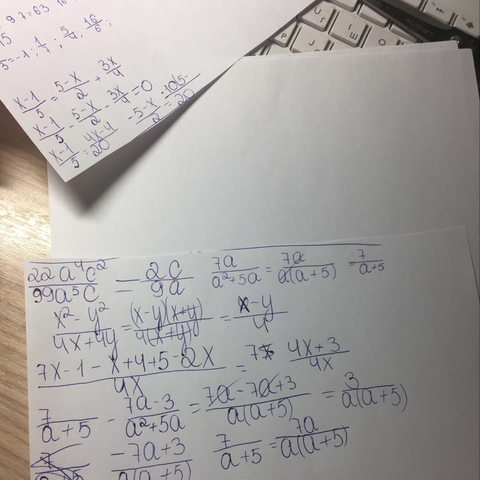 9 7=63
15
5=-1; 1/1; 5/4; 16/6;
x-1/5 = 5-x/2 + 3x/4
x-1/5 - 5-x/2 - 3x/4 = 0
x-1/5 = 4x-4/20
22a⁴c²/99a⁵c = 2c/9a 7a/a²+5a = 7a/a(a+5) = 7/a+5
x²-y²/4x+4y = (x-y)(x+y)/4(x+y) = x-y/4
7x-1-x+4+5-2x/4x = 4x+3/4x
7/a+5 - 7a-3/a²+5a = 7a-7a+3/a(a+5) = 3/a(a+5)
-7a+3/a(a+5) 7/a+5 = 7a/a(a+5)